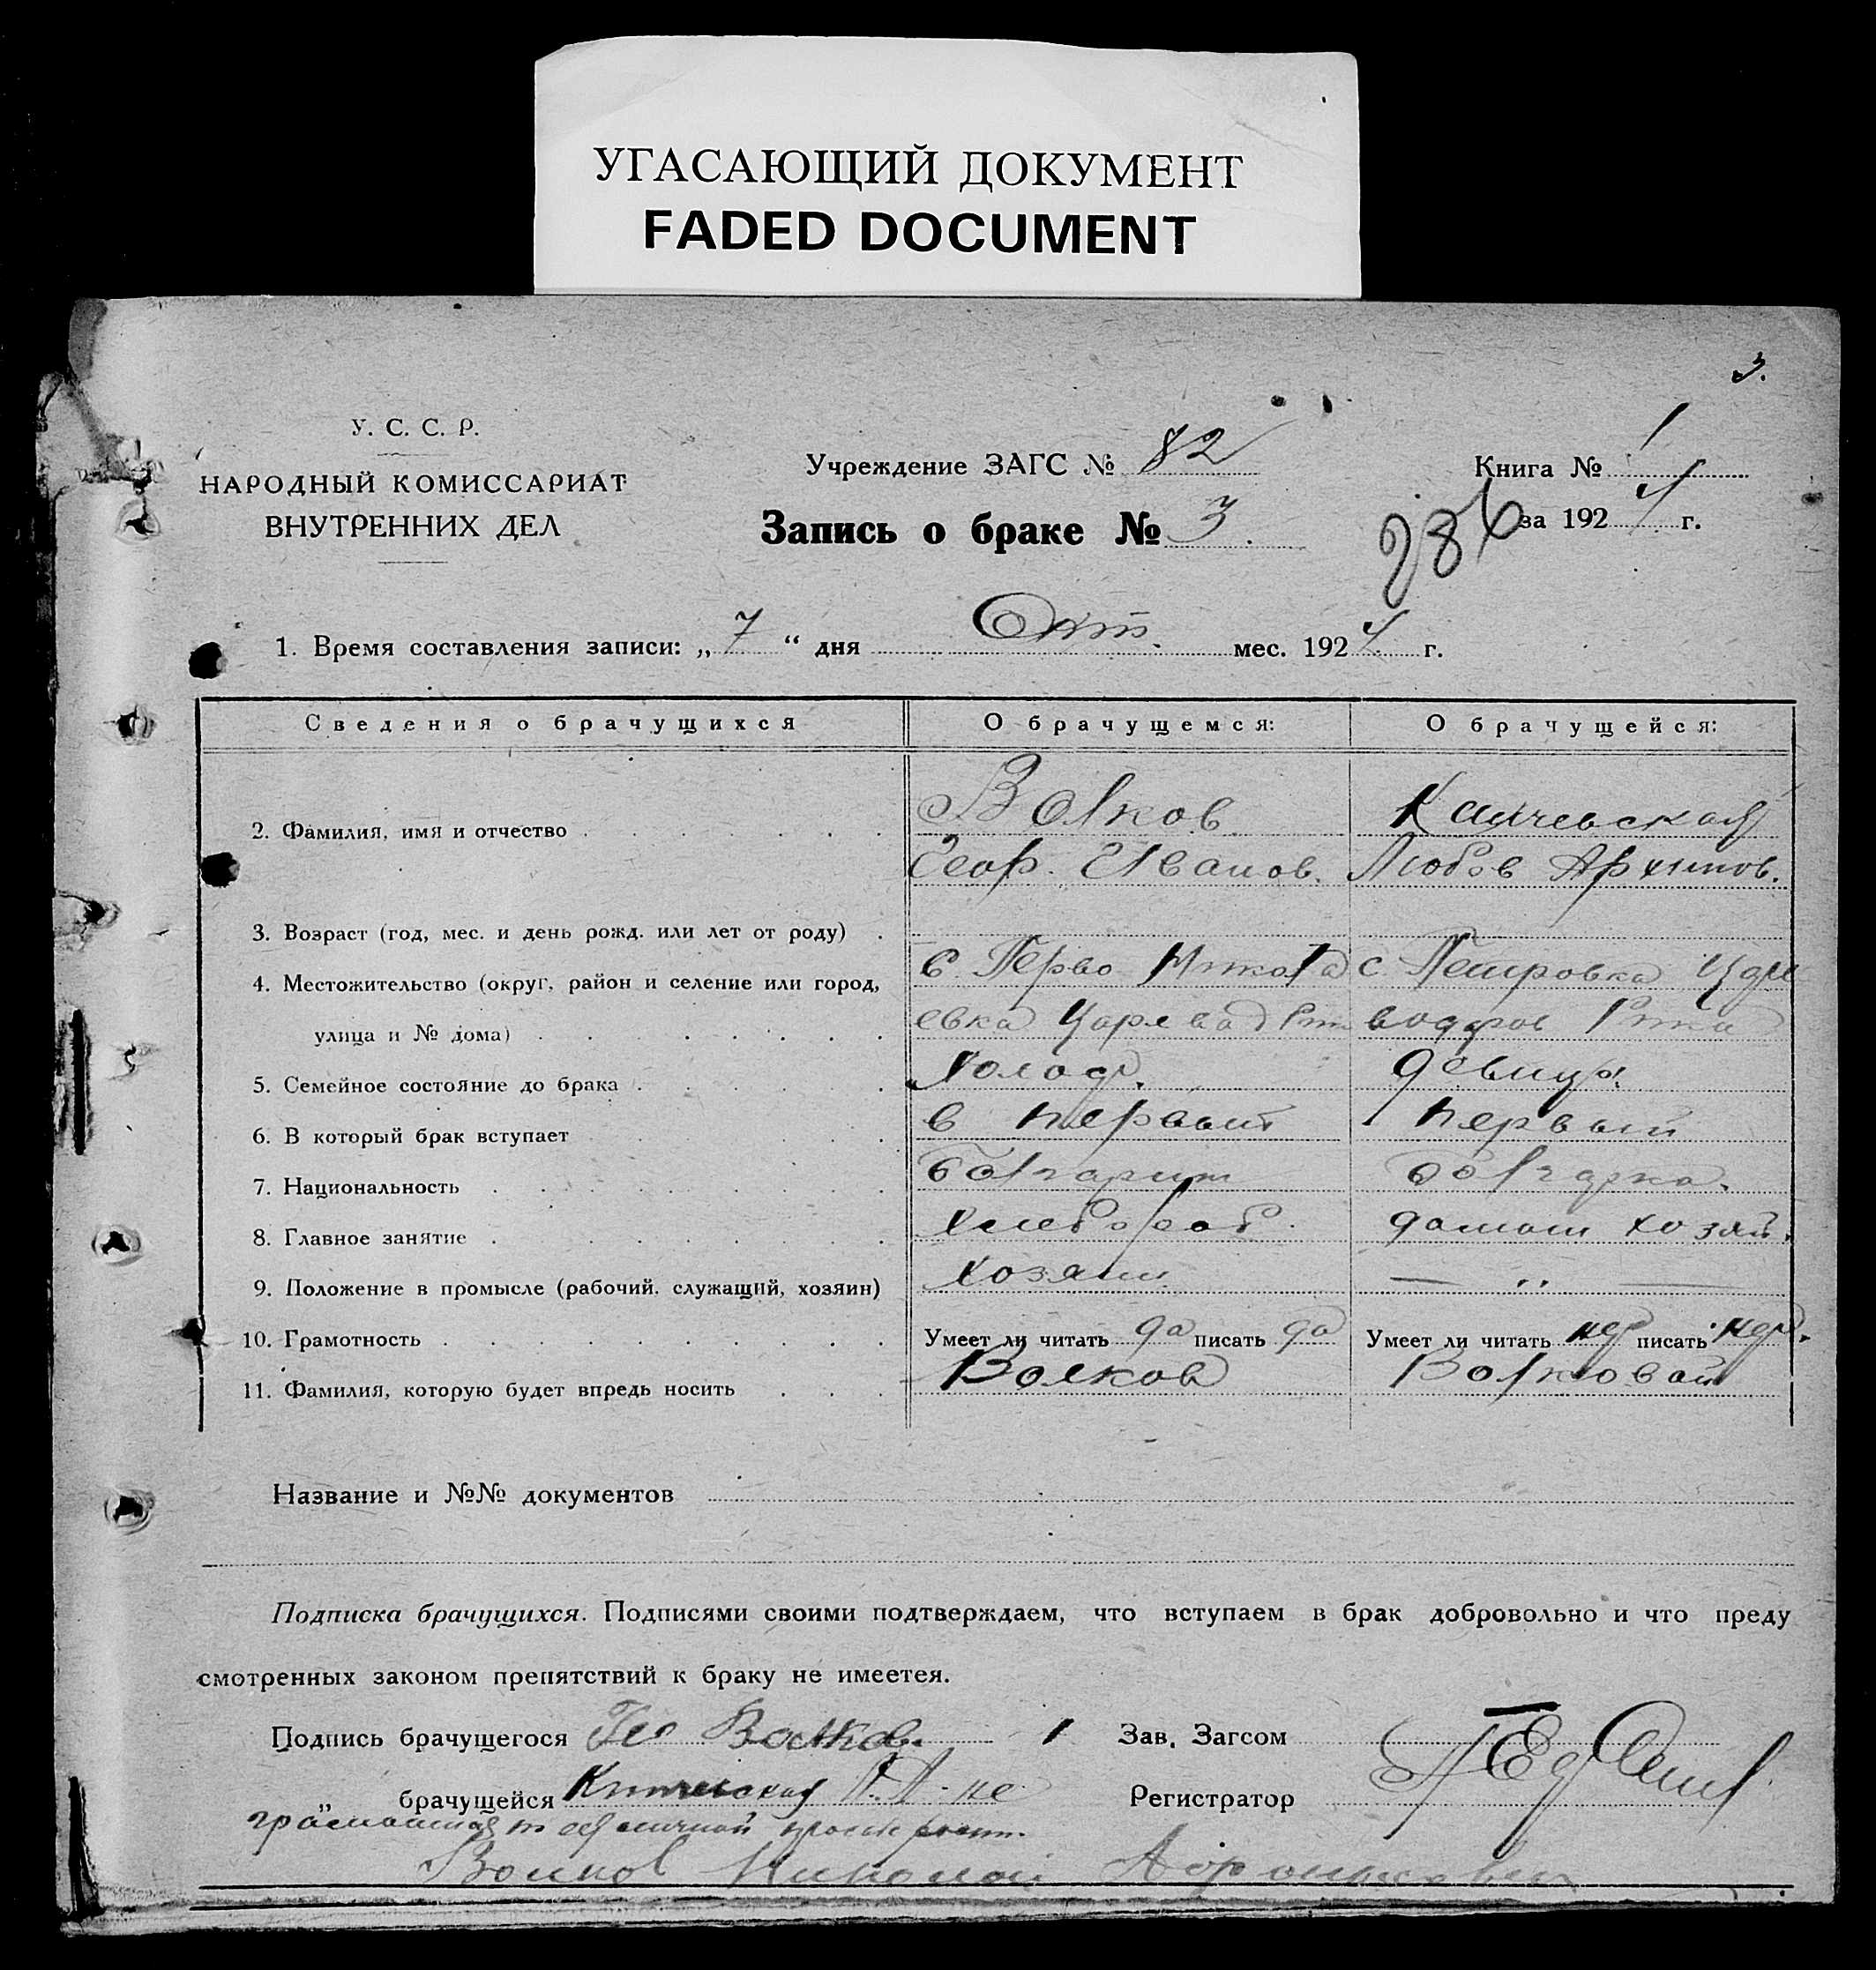 УГАСАЮЩИЙ ДОКУМЕНТ
FADED DOCUMENT
3.
У. С. С. Р.
НАРОДНЫЙ КОМИССАРИАТ
ВНУТРЕННИХ ДЕЛ
Учреждение ЗАГС № 82
Запись о браке № 3.
Книга № 1
за 1924 г.
286
1. Время составления записи: „7“ дня Окт. мес. 1924 г.
Сведения о брачущихся О брачущемся: О брачущейся:
2. Фамилия, имя и отчество Волков
Геор. Иванов. Любов Архипов.
3. Возраст (год, мес. и день рожд. или лет от роду)
4. Местожительство (округ, район и селение или город, с. Перво Никола с. Петровка
улица и № дома) евка
5. Семейное состояние до брака холост. девица.
6. В который брак вступает в первый первый
7. Национальность болгарин болгарка.
8. Главное занятие хлебороб. домаш хозяй.
9. Положение в промысле (рабочий, служащий, хозяин) хозяин — „ —
10. Грамотность Умеет ли читать да писать да Умеет ли читать нет писать нет.
11. Фамилия, которую будет впредь носить Волков Волковай
Название и №№ документов
Подписка брачущихся. Подписями своими подтверждаем, что вступаем в брак добровольно и что преду
смотренных законом препятствий к браку не имеетея.
Подпись брачущегося Гео Волков Зав. Загсом
„ брачущейся не Регистратор
грамотная
Волков Николай